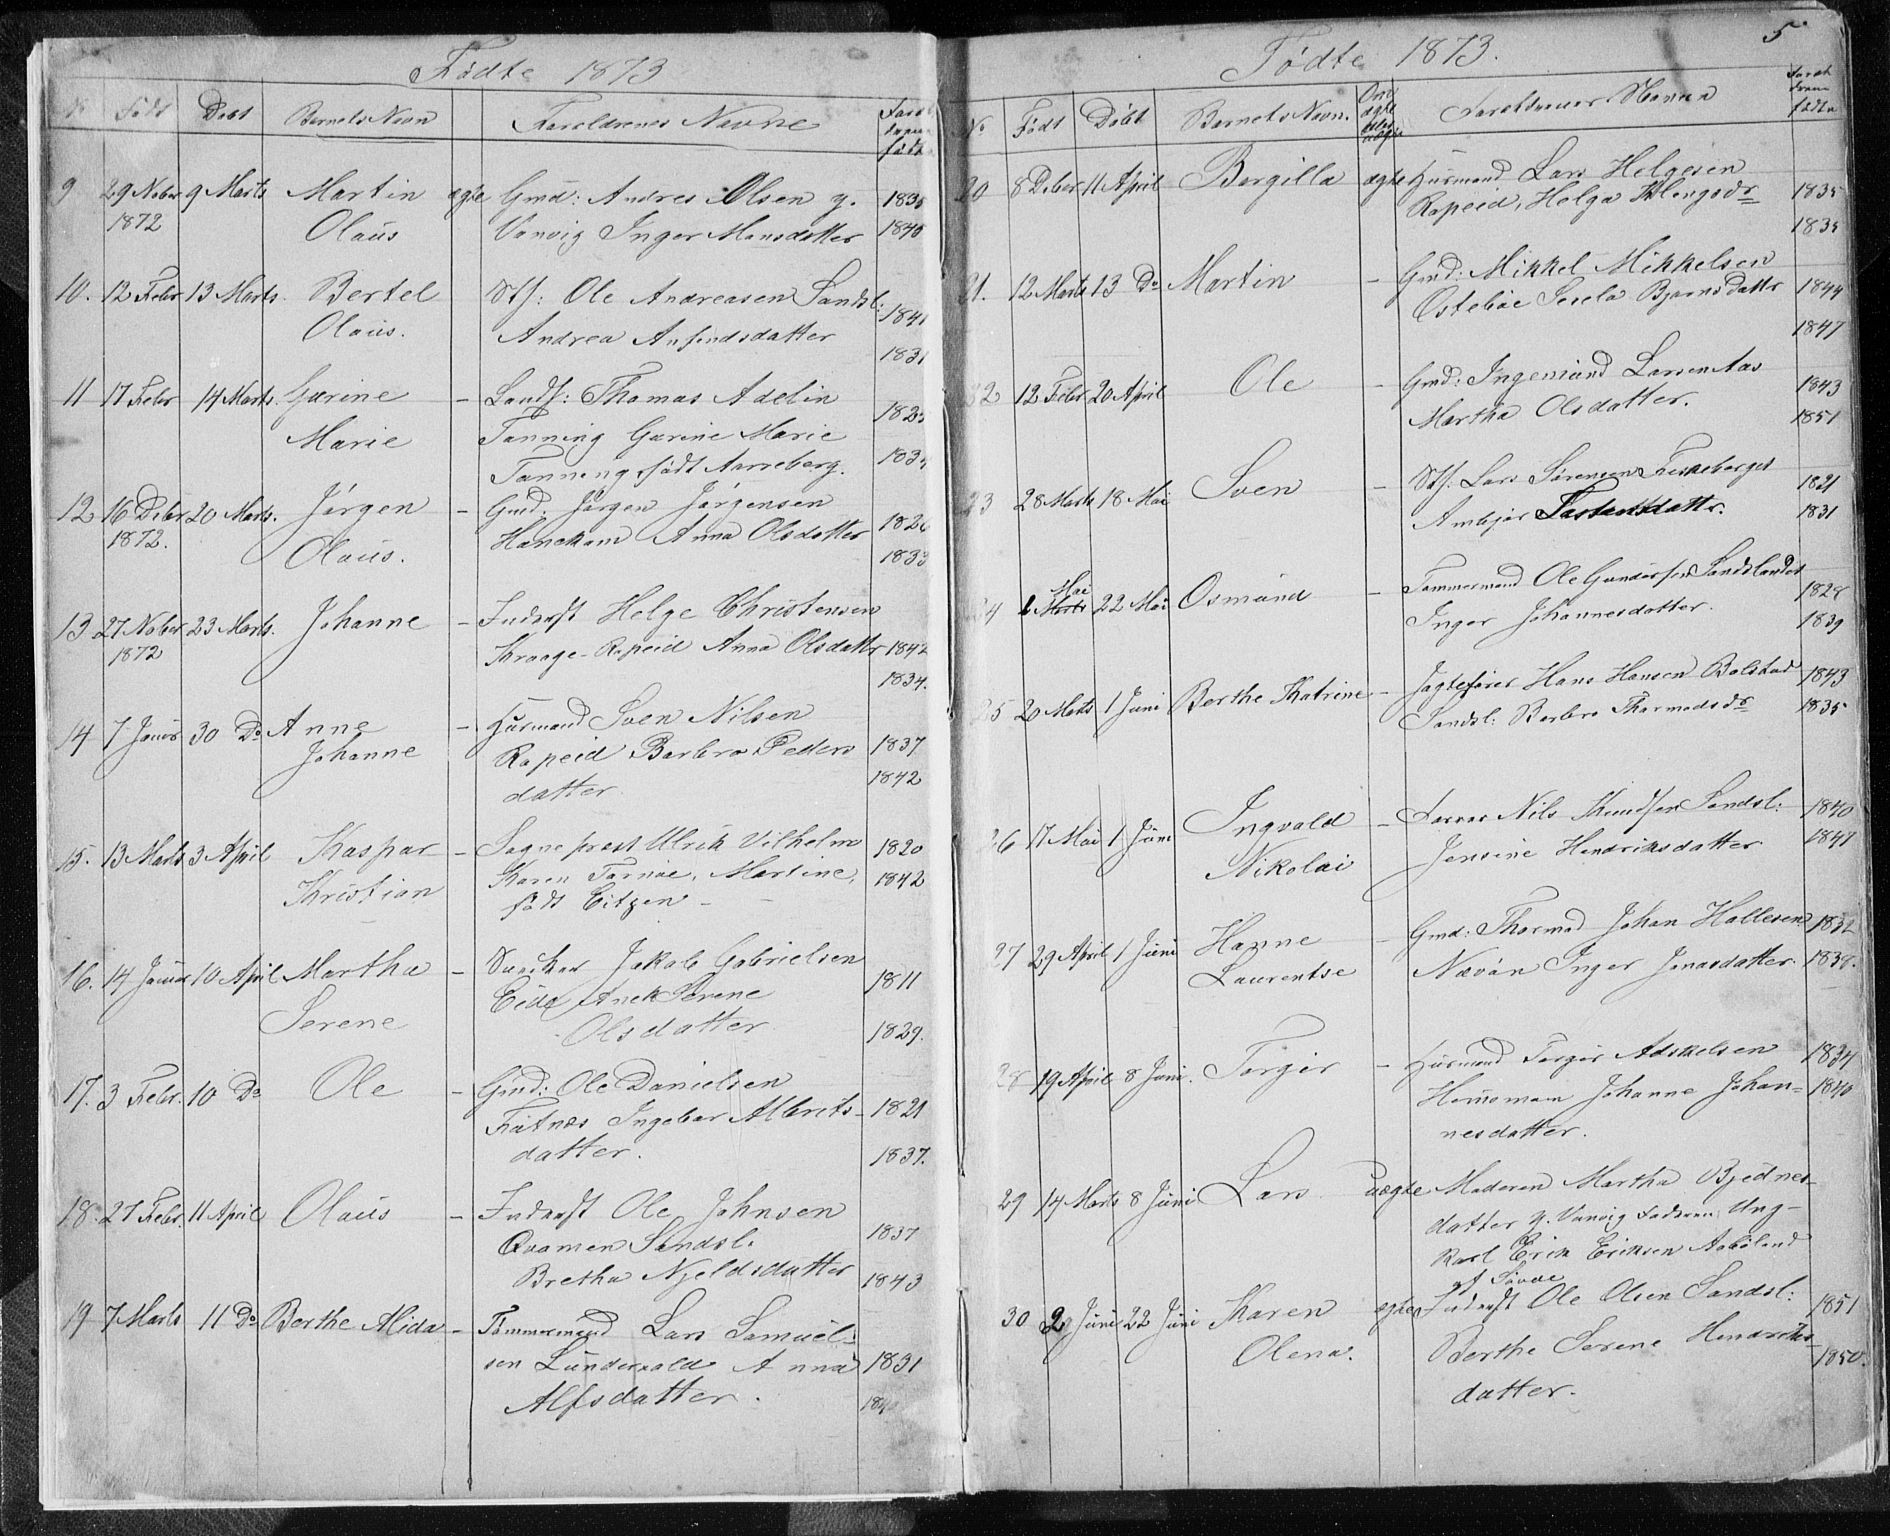 Fødte 1873
Født Døbt Barnets Navn Forældrenes Navne født
9 29 Nober 9 Marts Martin ægte Gmd: Andres Olsen y. 1835
1872 Olaus Vanvig Inger Monsdatter 1840
10. 12 Febr 13 Marts. Bertel Stf: Ole Andreasen Sandsl: 1841
Olaus. Andrea Anfindsdatter 1831
11 17 Febr 14 Marts. Garine – Landh: Thomas Adelin 1825
Marie Tanning Garine Marie
Tanning født Aarreberg. 1834
12 16 Deber 20 Marts. Jørgen – Gmd. Jørgen Jørgensen 1826
1872. Olaus. Hanekam Anna Olsdatter 1833
13 27 Nober 23 Marts. Johanne – Inderst Helge Christensen
1872 Kraage-Ropeid Anna Olsdattr 1842
1834.
14 7 Januar 30 Do Anne – Husmand Sven Nilsen
Johanne Ropeid Barbra Peders 1837
datter. 1842
15. 13 Marts 3 April Kaspar – Sogneprest Ulrik Vilhelm 1820
Kristian Koren Tornøe, Martine, 1842
født Eitzen –
16. 14 Januar 10 April Martha – Jakob Gabrielsen
Serene Eide Anek Serene 1811
Olsdatter 1829.
17. 3 Febr. 10 Do Ole – Gmd: Ole Danielsen
Fatnæs Ingebor Albrits- 1821
datter. 1837.
18. 27 Febr. 11 April Olaus – Inderst Ole Johnsen
Qvamen Sandsl. 1837
Bretha Njeldsdatter 1843
19 7 Marts 11 Do Berthe Alida – Tømmermand Lars Samuel-
sen Lundervold Anna 1831
Alfsdatter.
5
Fødte 1873.
No Født Døbt Barnets Navn. Om ægte eller uægte Forældrenes Navne født
20 8 Deber 11 April Bergilla ægte Husmand Lars Helgesen
Ropeid, Helga Klengsdr 1835
1835
21. 12 Marts 13 Do Martin – Gmd: Mikkel Mikkelsen
Østebøe Sesela Bjørnsdattr 1844
1847
22 12 Febr 20 April Ole – Gmd: Ingemund Larsen Aas 1843
Martha Olsdatter. 1851
23 28 Marts 18 Mai Sven – Stf. Lars Sørensen Fiskeberget 1821
Ambjør Tostensdattr. 1831
Mai
24 Marts 22 Mai Osmund – Tømmermand Ole Gundersen Sandslandet 1828
Inger Johannesdatter. 1839
25 20 Marts 1 Juni Berthe Katrine – Jagtefører Hans Hansen Bolstad 1843
Sandsl: Barbro Thormodsdr 1835
26 17 Mai 1 Juni Ingvald – Nils Knudsen Sandsl: 1840
Nikolai Jensine Hendriksdatter 1841
27 29 April 1 Juni Hanne – Gmd: Thormod Johan Hallesen 1832
Laurentse Nævøn Inger Jonasdatter. 1838.
28 19 April 8 Juni. Torger – Husmand Torger Adskelsen 1834
Johanne Johan- 1840
nesdatter.
29 14 Marts 8 Juni Lars uægte Moderen Martha Bjednes-
datter y. Vanvig Faderen Ung-
karl Erik Eriksen Aabøland
af Sævde
30 2 Juni 22 Juni Karen ægte Inderst Ole Olsen Sandsl: 1851
Olena. Berthe Serene Hendriks- 1850.
datter.